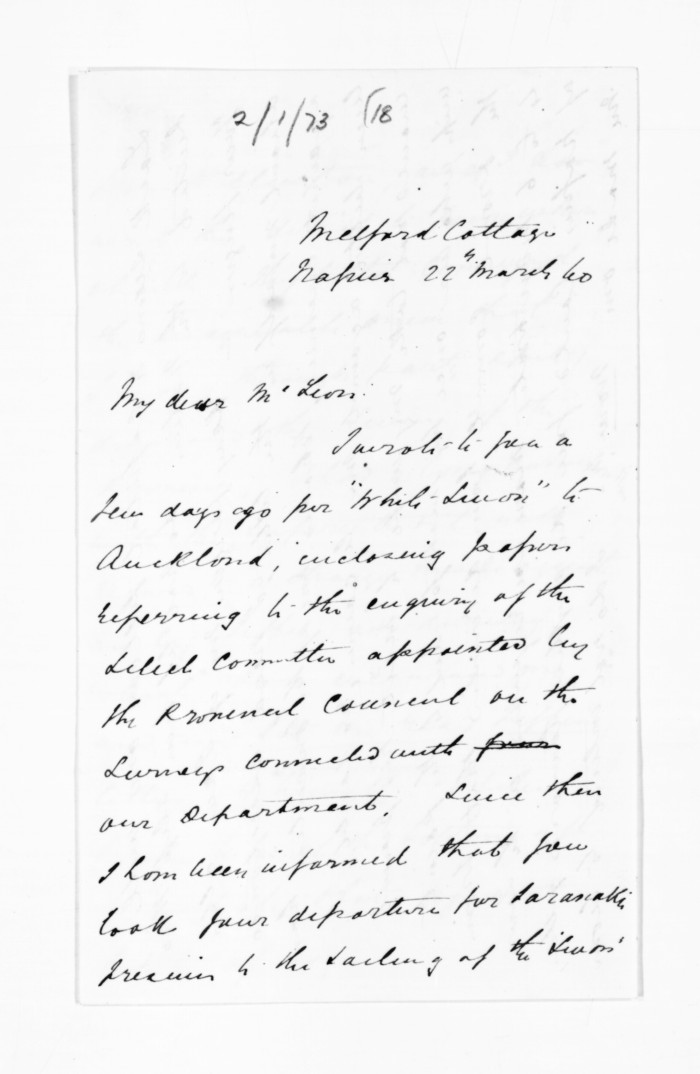 2/1/73 (18
Melford Cottage
Napier 22th March 60
My dear Mr Lean
I wrote to you a
few days ago per "White Swan" to
Auckland, inclosing papers
referring to the enquiry of the
Select Committee appointed by
the Provincial Council on the
Surveys connected with
our Department. Since then
I have been informed that you
took your departure for Taranaki
previous to the Sailing of the "Swan"